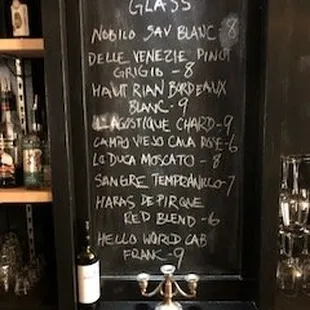 GLASS
NOBILO SAV BLANC - 8
DELLE VENEZIE PINOT
GRIGIO - 8
HAUT RIAN BORDEAUX
BLANC - 9
L'AGOSTIQUE CHARD - 9
CAMPO VIEJO CAVA ROSE - 6
LA DUCA MOSCATO - 8
SANGRE TEMPRANILLO - 7
HARAS DE PIRQUE
RED BLEND - 6
HELLO WORLD CAB
FRANC - 9